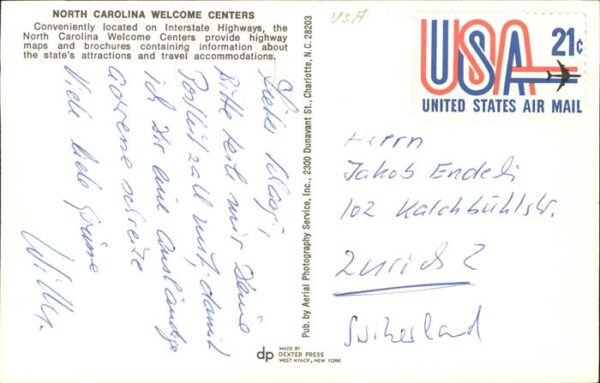 NORTH CAROLINA WELCOME CENTERS
Conveniently located on Interstate Highways, the
North Carolina Welcome Centers provide highway
maps and brochures containing information about
the state's attractions and travel accommodations.
Bitte teil mir Deine
Postleitzahl mit, damit
ich Dir eine
schreibe
Viele liebe Grüsse
Willy.
Pub. by Aerial Photography Service, Inc., 2300 Dunavant St., Charlotte, N.C. 28203
dp
MADE BY
DEXTER PRESS
WEST NYACK, NEW YORK
USA
USA 21c
UNITED STATES AIR MAIL
Herrn
Jakob Endeli
102 Kalchbühlstr.
Zürich 2
Switzerland